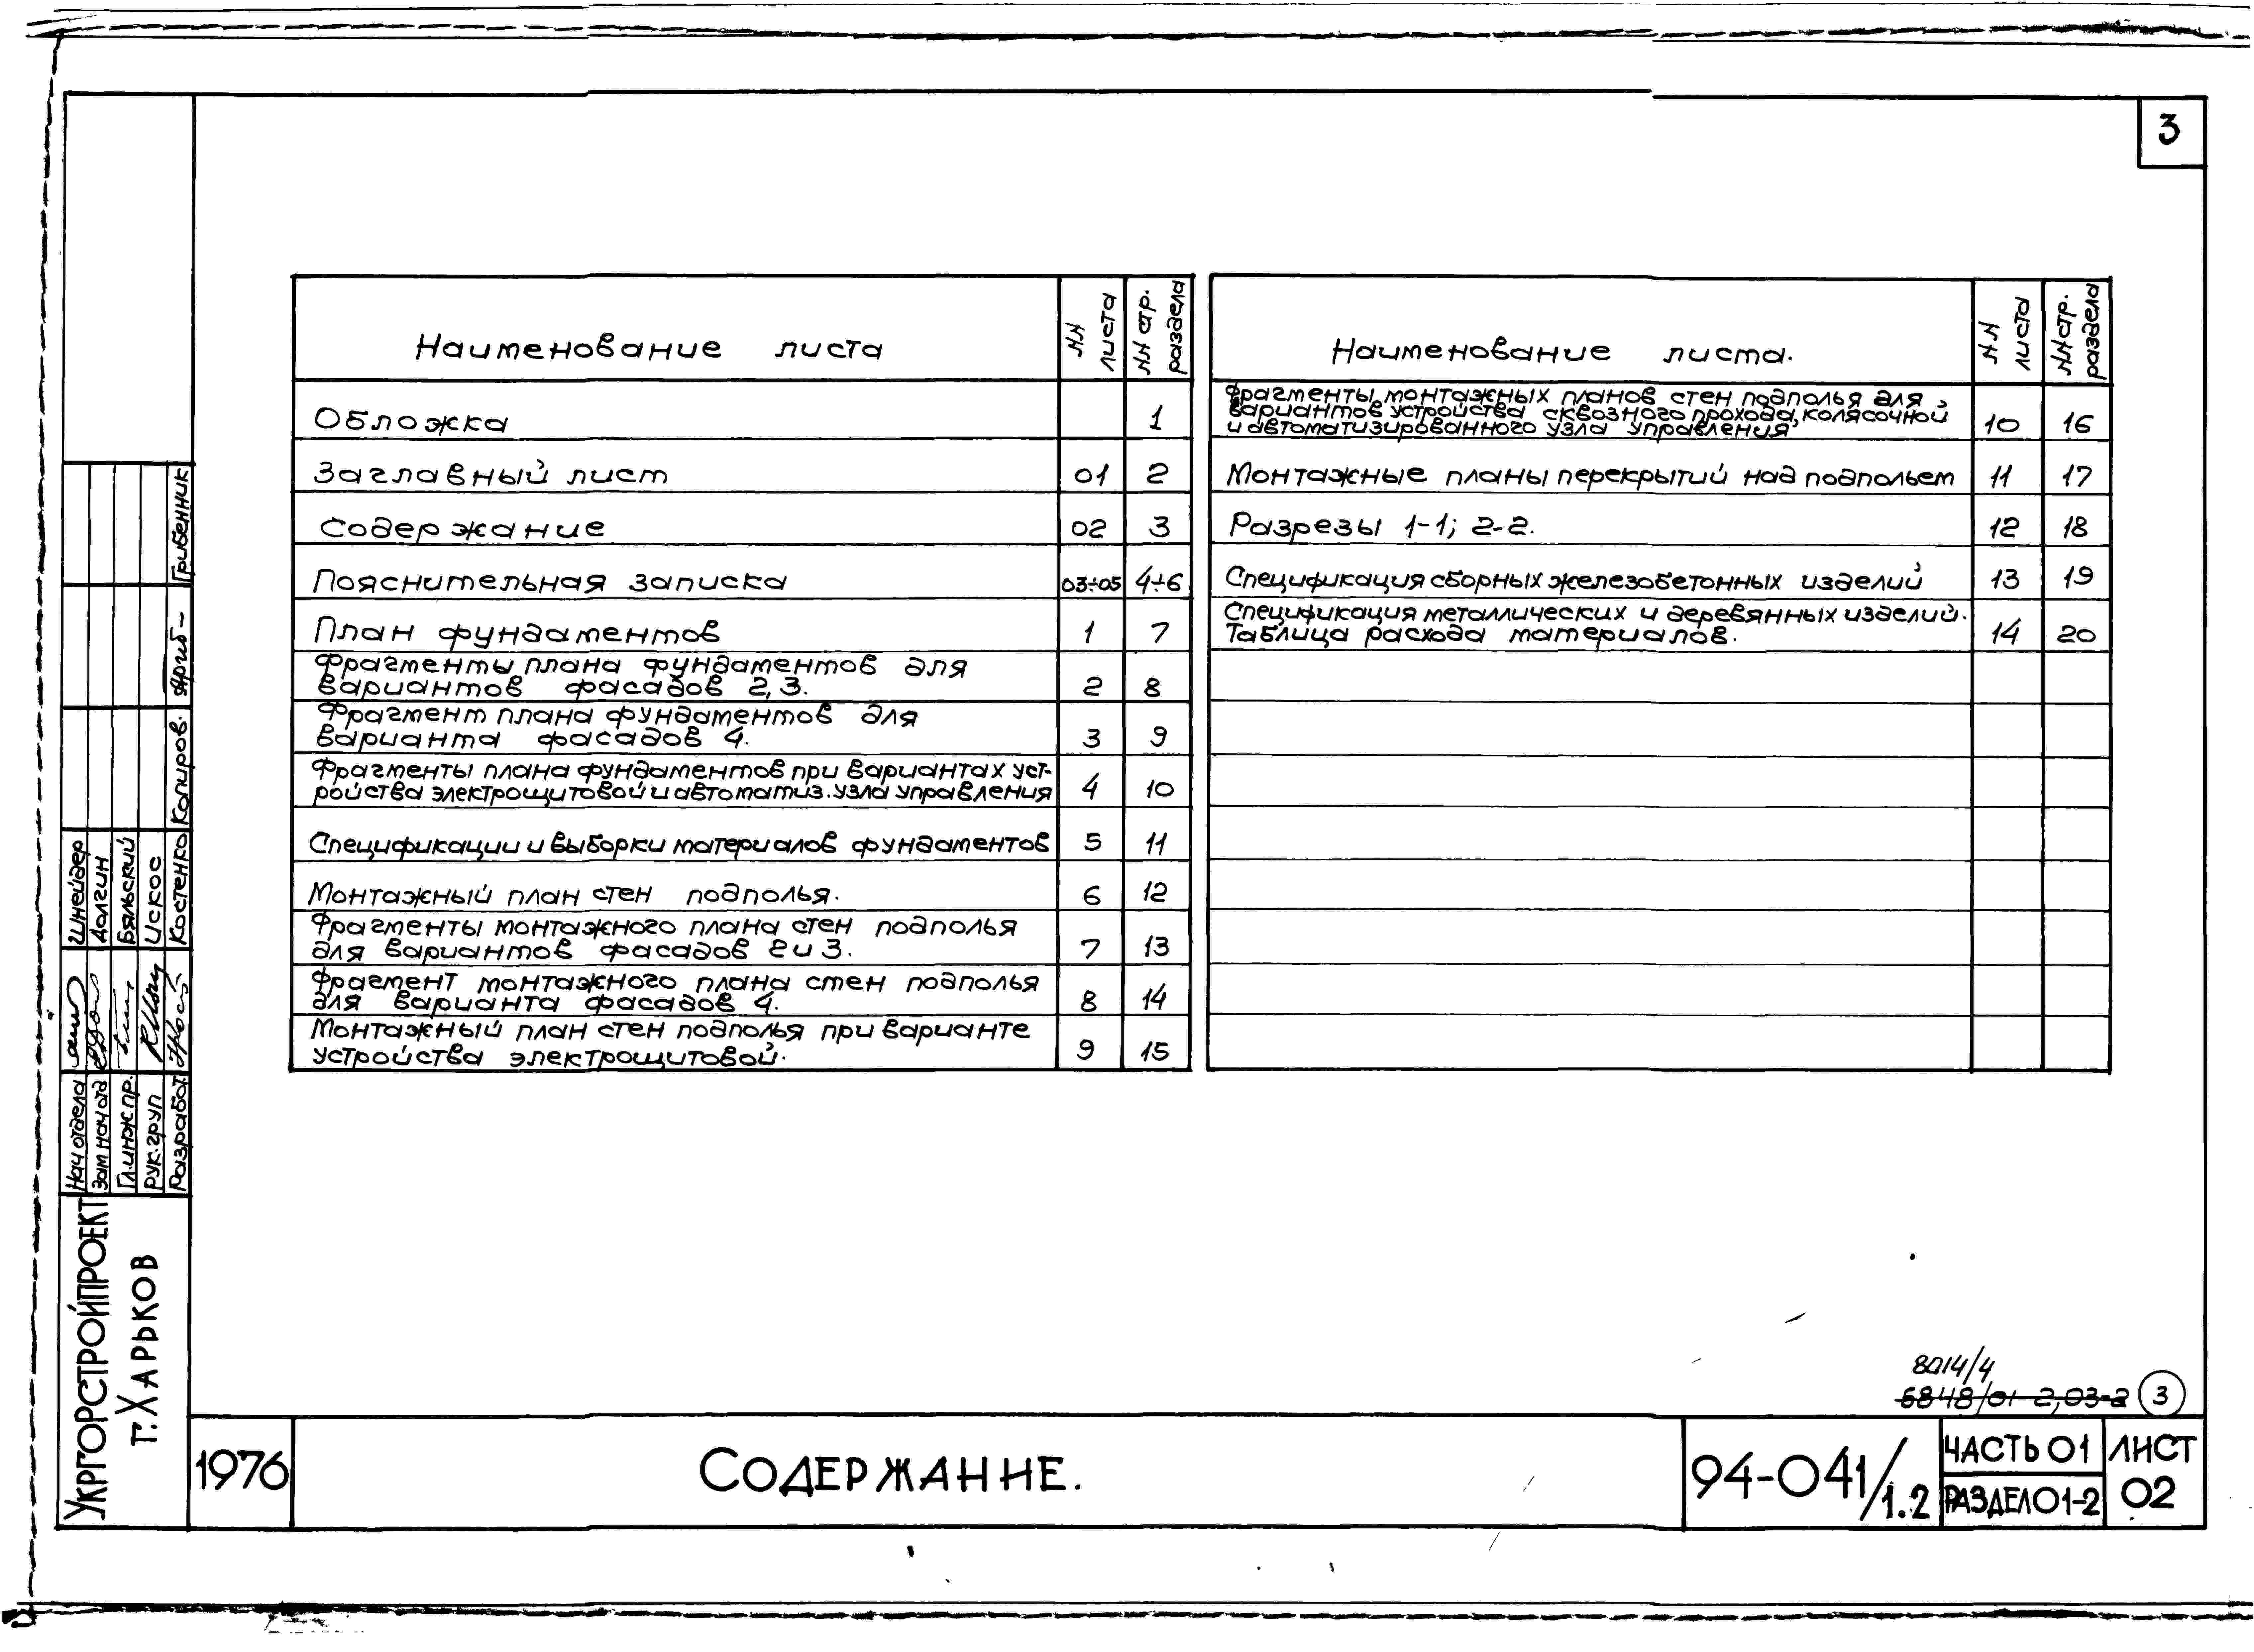 3
Наименование листа
НН листа
НН стр. раздела
Обложка 1
Заглавный лист 01 2
Содержание 02 3
Пояснительная записка 03÷05 4÷6
План фундаментов 1 7
Фрагменты плана фундаментов для
вариантов фасадов 2,3. 2 8
Фрагмент плана фундаментов для
варианта фасадов 4. 3 9
Фрагменты плана фундаментов при вариантах уст-
ройства электрощитовой и автоматиз. узла управления 4 10
Спецификации и выборки материалов фундаментов 5 11
Монтажный план стен подполья. 6 12
Фрагменты монтажного плана стен подполья
для вариантов фасадов 2 и 3. 7 13
Фрагмент монтажного плана стен подполья
для варианта фасадов 4. 8 14
Монтажный план стен подполья при варианте
устройства электрощитовой. 9 15
Наименование листа.
НН листа
НН стр. раздела
Фрагменты монтажных планов стен подполья для
вариантов устройства сквозного прохода, колясочной
и автоматизированного узла управления 10 16
Монтажные планы перекрытий над подпольем 11 17
Разрезы 1-1; 2-2. 12 18
Спецификация сборных железобетонных изделий 13 19
Спецификация металлических и деревянных изделий.
Таблица расхода материалов. 14 20
Нач отдела Шнейдер
Зам нач отд Долгин
Гл. инж пр. Бяльский
Рук. груп Искос
Разработ. Костенко
Копиров. Грибенник
Укргорстройпроект
г. Харьков
8014/4
6848/01-2,03-2 3
1976
Содержание.
94-041/1.2
Часть 01
Раздел 01-2
Лист
02